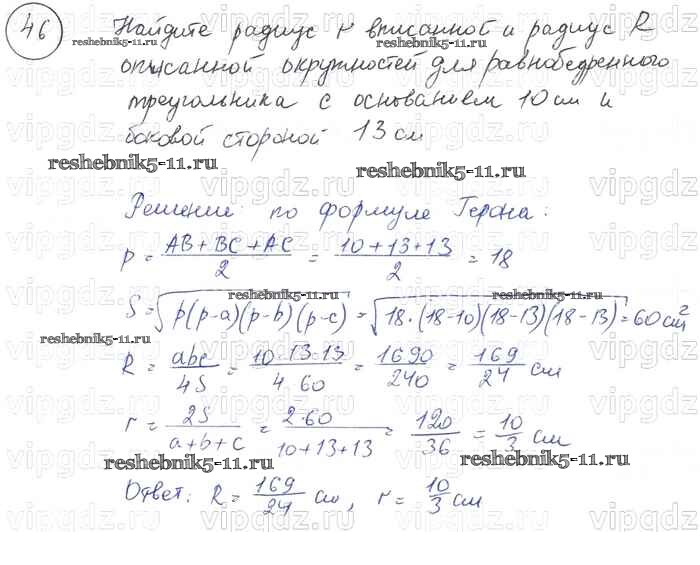 46 Найдите радиус r вписанной и радиус R
reshebnik5-11.ru reshebnik5-11.ru
описанной окружностей для равнобедренного
треугольника с основанием 10 см и
боковой стороной 13 см
reshebnik5-11.ru reshebnik5-11.ru
Решение: по формуле Герона:
p = (AB + BC + AC)/2 = (10+13+13)/2 = 18
reshebnik5-11.ru reshebnik5-11.ru
S = √(p(p-a)(p-b)(p-c)) = √(18·(18-10)(18-13)(18-13)) = 60 см²
reshebnik5-11.ru
R = abc/4S = 10·13·13/4·60 = 1690/240 = 169/24 см
r = 2S/(a+b+c) = 2·60/(10+13+13) = 120/36 = 10/3 см
reshebnik5-11.ru reshebnik5-11.ru
Ответ: R = 169/24 см, r = 10/3 см
vipgdz.ru vipgdz.ru vipgdz.ru